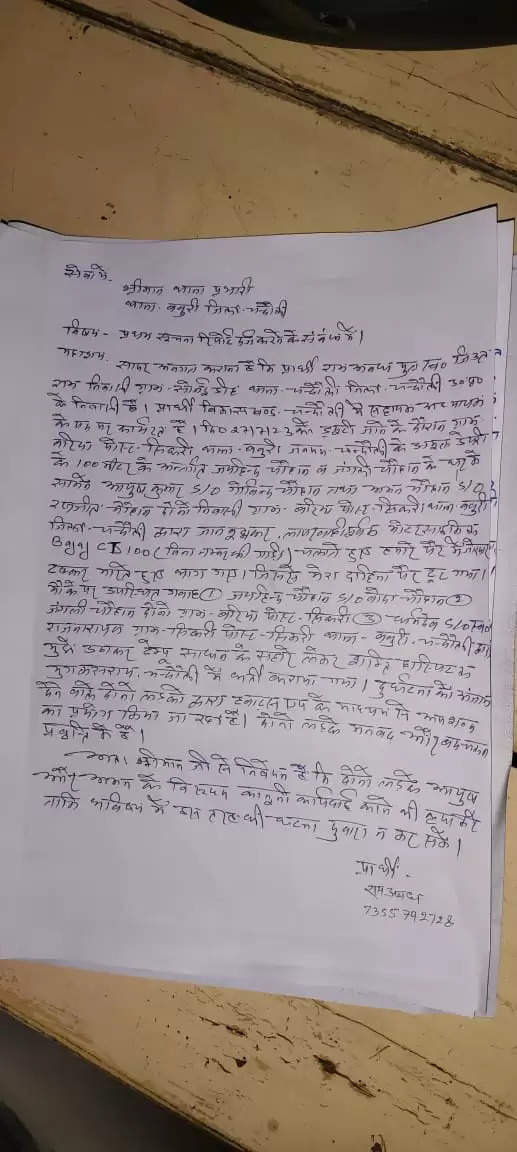 सेवा में,
श्रीमान थाना प्रभारी
थाना बबुरी जिला चन्दौली
विषय - प्रथम सूचना रिपोर्ट दर्ज करने के संबंध में।
महाशय,
सादर अवगत कराना है कि प्रार्थी राम अवध पुत्र स्व०
राम निवासी ग्राम थाना - चन्दौली जिला चन्दौली उ०प्र०
के निवासी हैं। प्रार्थी विकास खण्ड - चन्दौली में सहायक अध्यापक
के पद पर कार्यरत है। के दौरान ग्राम
पोस्ट - सिकरी थाना - बबुरी जनपद - चन्दौली के
के 100 मीटर के अन्तर्गत चौहान व जंगली चौहान के घर के
सामने आयुष कुमार S/O गोविन्द चौहान तथा अमन चौहान S/O
रणजीत चौहान दोनों निवासी ग्राम - पोस्ट - सिकरी थाना बबुरी
जिला - चन्दौली द्वारा जानबूझकर, लापरवाही पूर्वक मोटरसाइकिल
Bajaj CT 100 (बिना नम्बर की गाड़ी) चलाते हुए हमारे पैर में
टक्कर मारते हुए भाग गए। जिससे मेरा दाहिना पैर टूट गया।
मौके पर उपस्थित गवाह ① चौहान S/O चौहान ②
जंगली चौहान दोनों ग्राम - पोस्ट - सिकरी ③ S/O स्व०
राजनारायण ग्राम - सिकरी पोस्ट - सिकरी थाना - बबुरी, चन्दौली
मुझे उठाकर टेम्पू साधन के सहारे लेकर हास्पिटल
मुगलसराय, चन्दौली में भर्ती कराया गया। दुर्घटना को अंजाम
देने वाले दोनों लड़कों द्वारा के माध्यम से अपशब्द
का प्रयोग किया जा रहा है। दोनों लड़के मनबढ़ और
प्रवृत्ति के हैं।
अतः श्रीमान जी से निवेदन है कि दोनों लड़के आयुष
और अमन के विरुद्ध कानूनी कार्यवाई करने की कृपा करें
ताकि भविष्य में इस तरह की घटना दुबारा न कर सकें।
प्रार्थी -
राम अवध
7355792728